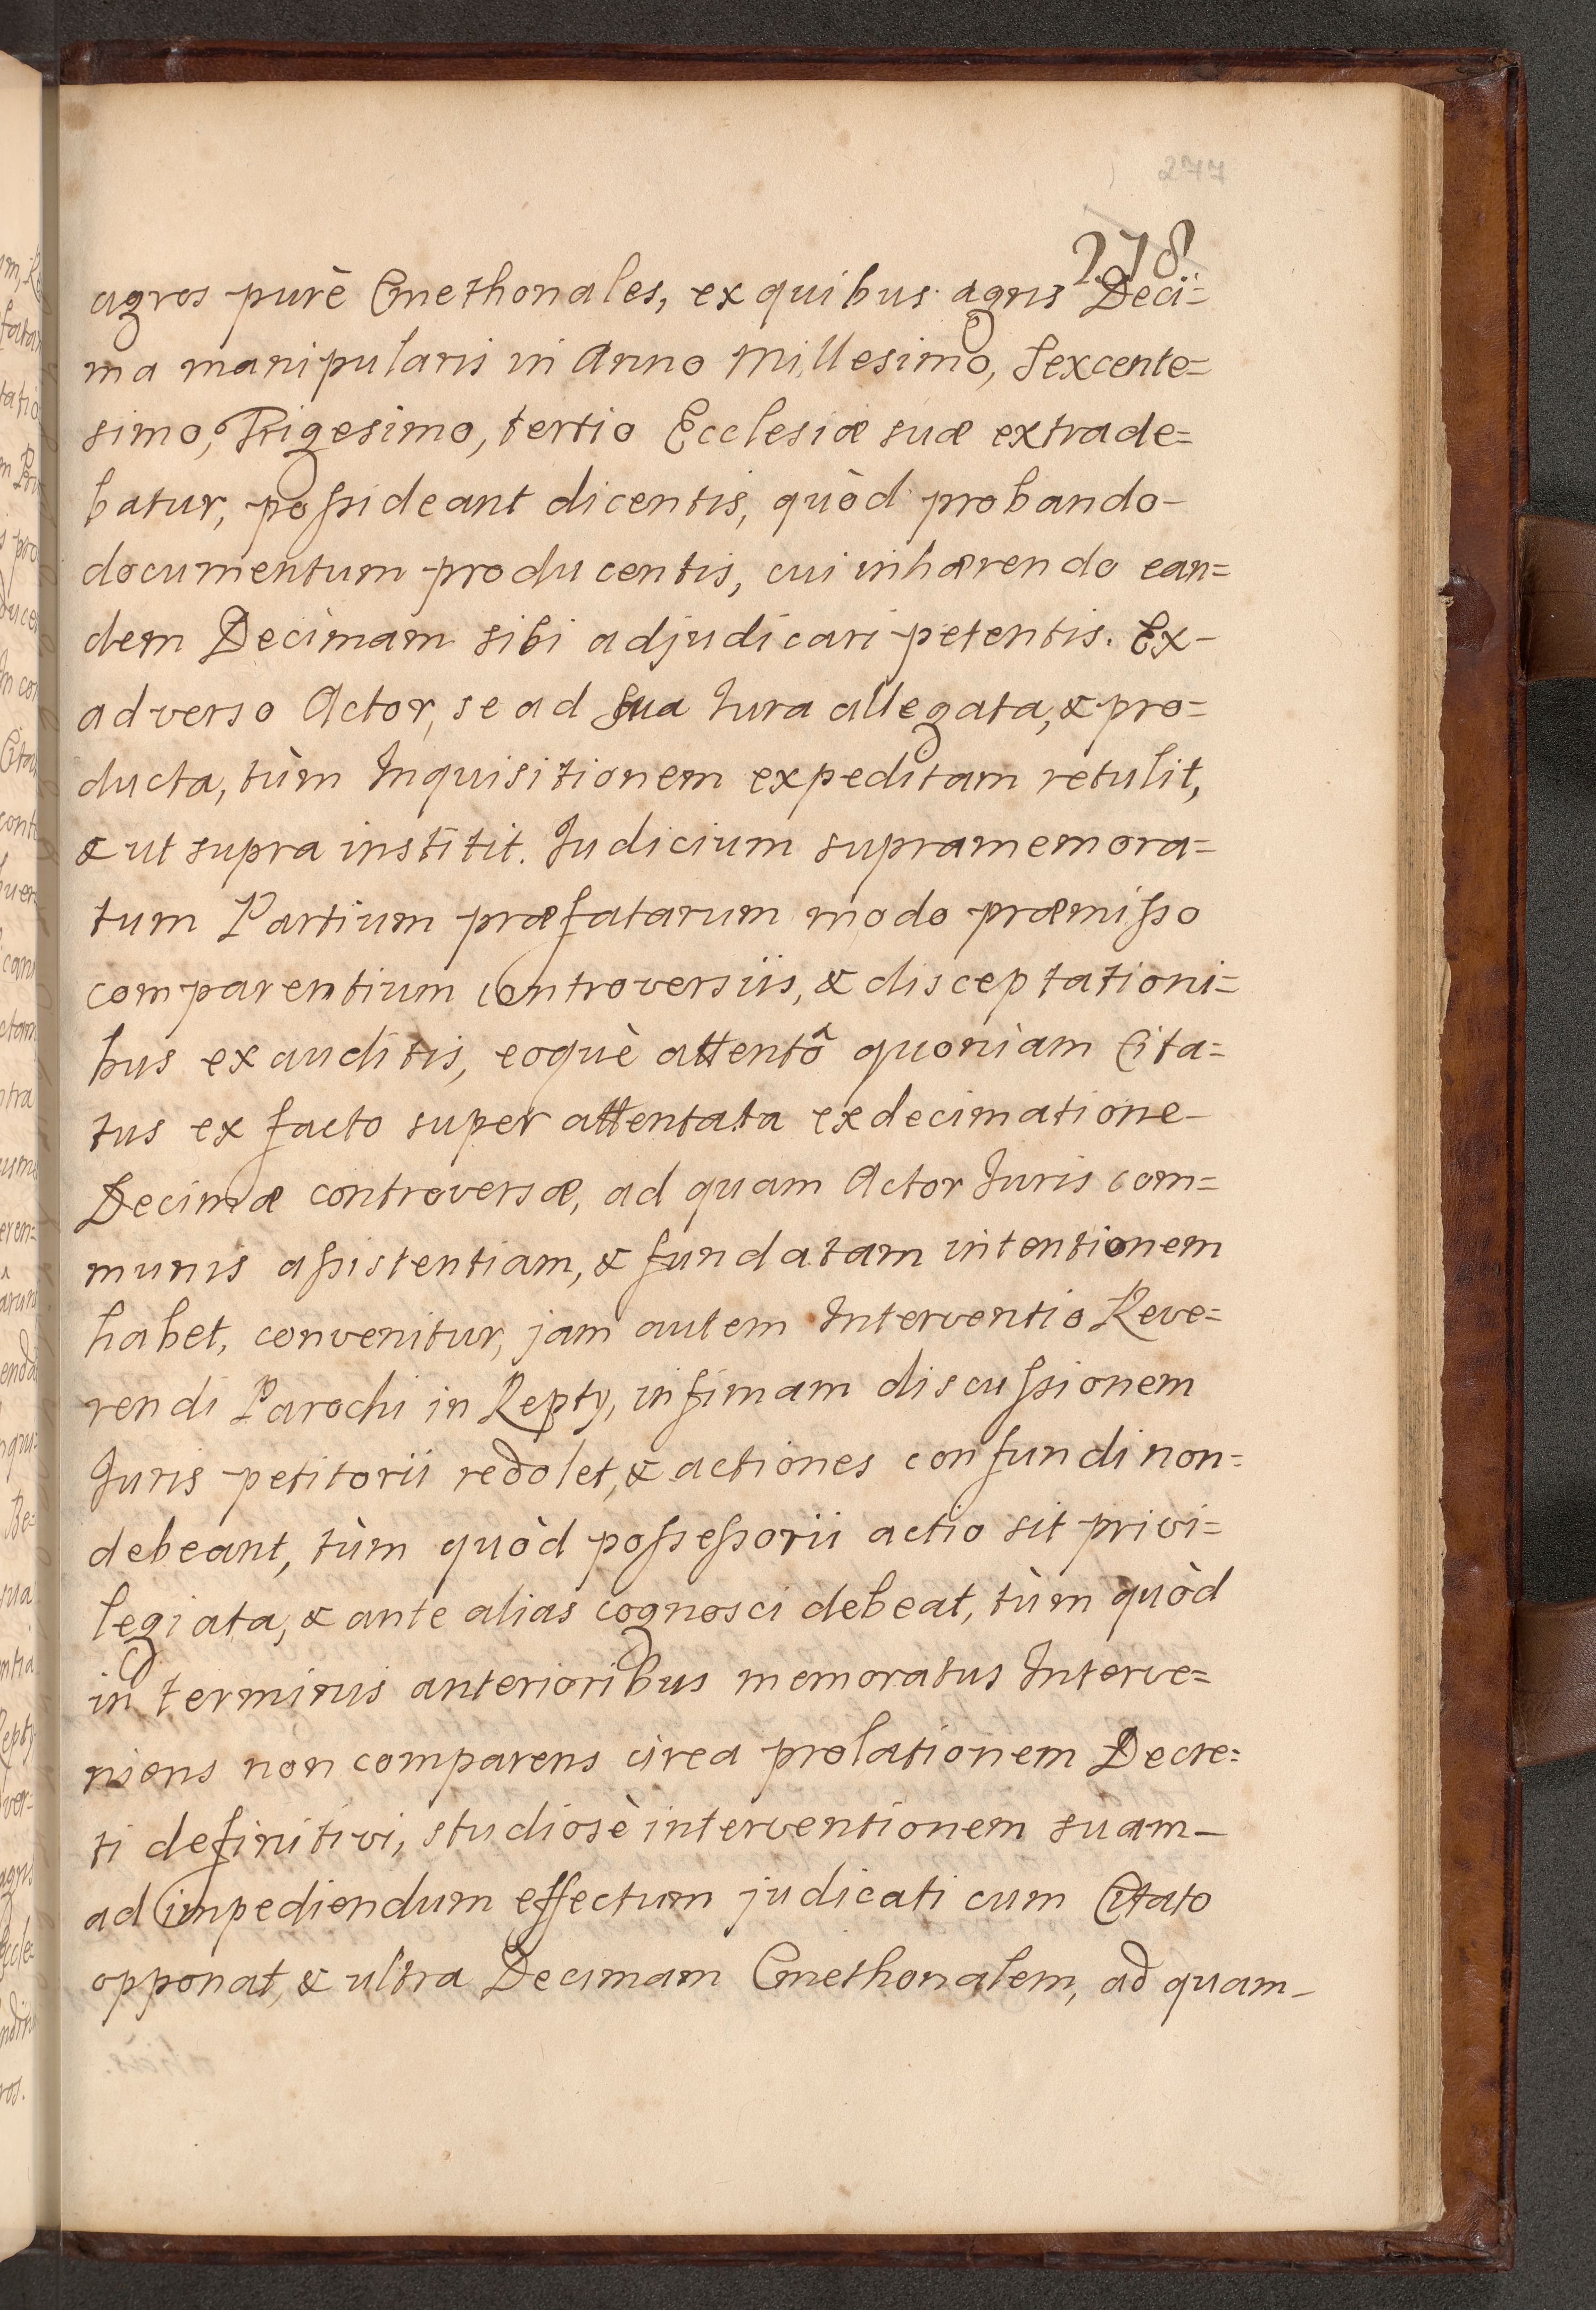 277
278
agros purè Cmethonales, ex quibus agris Deci=
ma manipularis in Anno Millesimo, Sexcente=
simo, Trigesimo, tertio Ecclesiæ suæ extrade=
batur, possideant dicentis, quòd probando-
documentum producentis, cui inhærendo ean=
dem Decimam sibi adjudicari petentis. Ex-
adverso Actor, se ad sua Iura allegata, & pro=
ducta, tùm Inquisitionem expeditam retulit,
& ut supra institit. Iudicium supramemora=
tum Partium præfatarum modo præmisso
comparentium controversiis, & disceptationi=
bus exauditis, eoquè attentô quoniam Cita=
tus ex facto super attentata exdecimatione-
Decimæ controversæ, ad quam Actor Iuris com=
munis assistentiam, & fundatam intentionem
habet, convenitur, jam autem Interventio Reve=
rendi Parochi in Repty, infimam discussionem
Iuris petitorii redolet, & actiones confundi non=
debeant, tùm quòd possessorii actio sit privi=
legiata, & ante alias cognosci debeat, tùm quòd
in terminis anterioribus memoratus Interve=
niens non comparens circa prolationem Decre=
ti definitivi, studiosè interventionem suam-
ad impediendum effectum judicati cum Citato
opponat, & ultra Decimam Cmethonalem, ad quam-